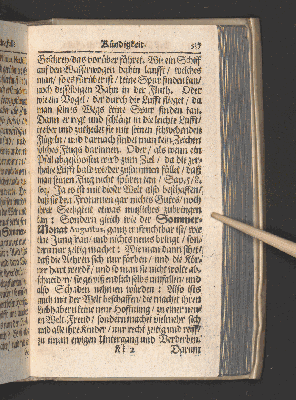 Kündigkeit. 517
Geschrey / das vorüber fähret. Wie ein Schiff
auf den Wasserwogen dahin laufft / welches
man / so es fürüber ist / keine Spur finden kan /
noch desselbigen Bahn in der Fluth. Oder
wie ein Vogel / der durch die Lufft flieget / da
man seines Wegs keine Spur finden kan.
Dann er regt und schlägt in die leichte Lufft /
treibet und zertheilet sie mit seinen schwebenden
Flügeln / und darnach findet man kein Zeichen
solches Flugs darinnen. Oder / als wenn ein
Pfeil abgeschossen wird zum Ziel / da die zer-
theilte Lufft bald wieder zusammen fället / daß
man seinen Flug nicht spühren kan / Sap. 5 /
Ja es ist mit dieser Welt also beschaffen /
daß sie den Frommen gar nichts Gutes / noch
ihrer Seligkeit etwas nützliches zubringen
kan: Sondern gleich wie der Sommer-
Monat Augustus, gantz unfruchtbar ist / wie
eine Jungfrau / und nichts neues bringt / son-
dern nur zeitig machet: Wie man dann siehet /
daß die Aehren sich nur färben / und die Kör-
ner hart werde / und so man sie nicht wolte ab-
schneiden / sie gewißlich selbs ausfallen / und
also Schaden nehmen würden: Also ists
auch mit der Welt beschaffen / die machet ihren
Liebhabern keine neue Hoffnung / zu einer neu-
en Welt-Freud / sondern machet vielmehr sich
und alle ihre Kinder / nur recht zeitig und reiff /
zu ihrem ewigen Untergang und Verderben.
Kk 2 Darum